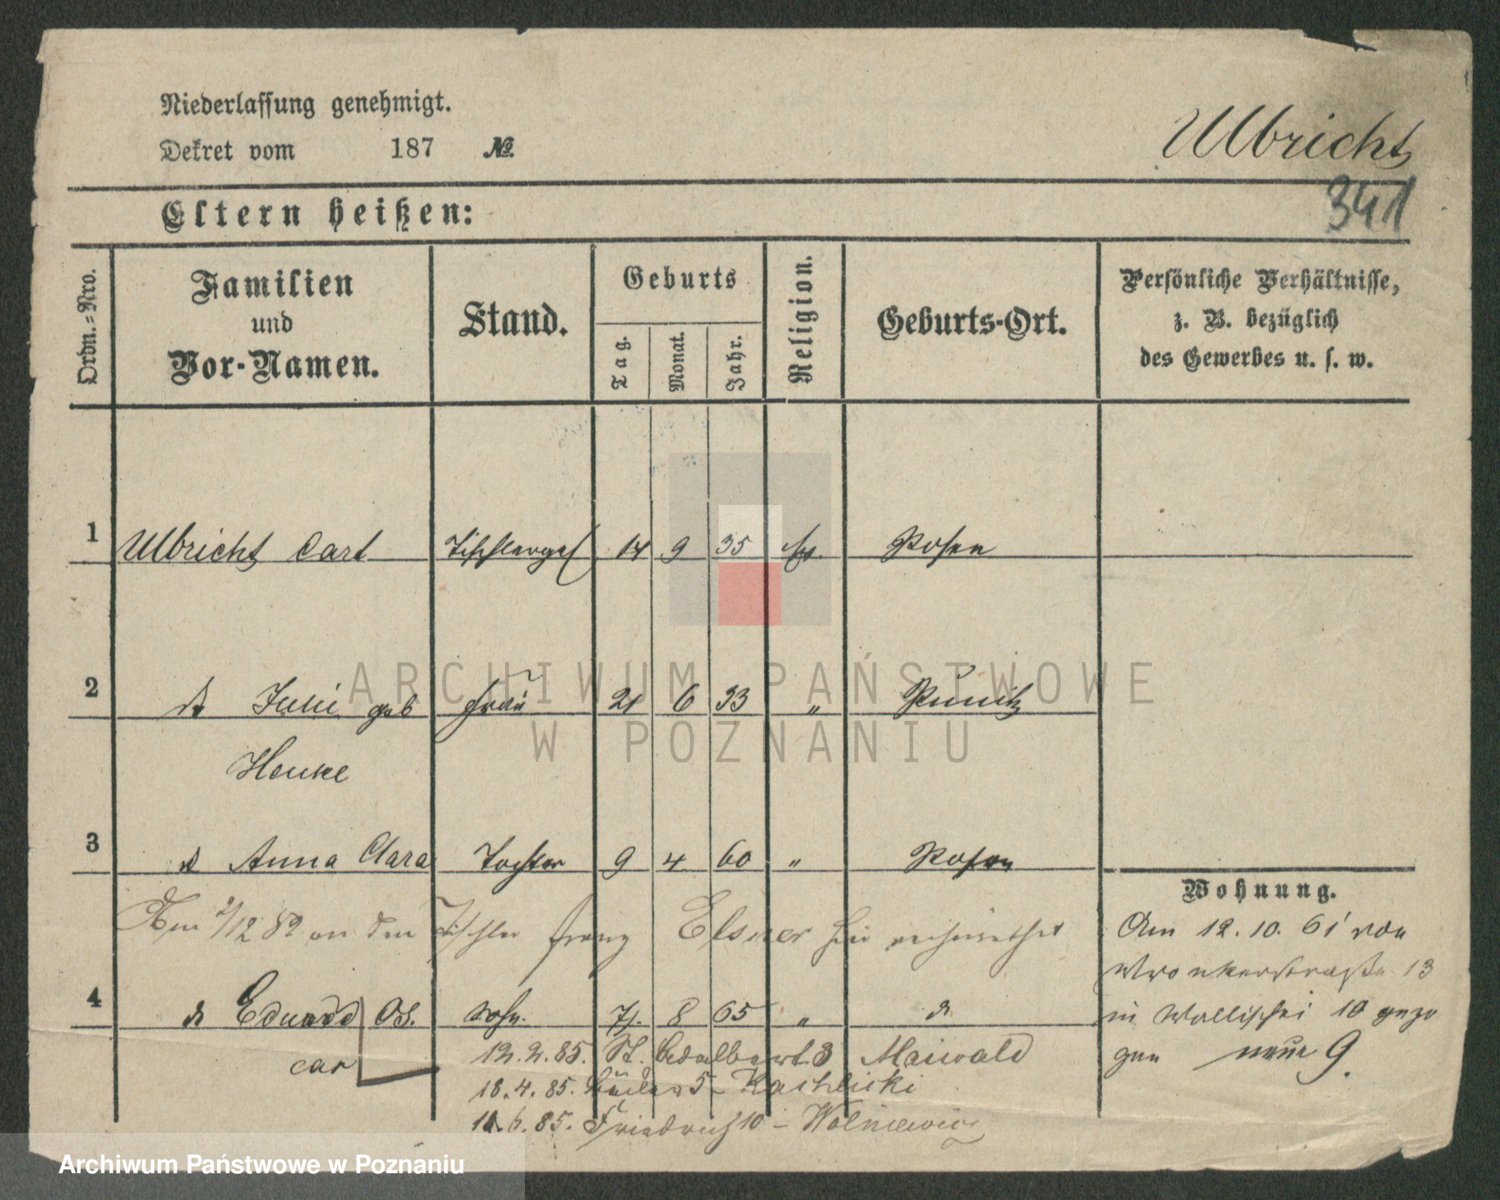 Niederlassung genehmigt.
Dekret vom 187 №
Ulbricht
341
Eltern heißen:
Ordn.-Nro.
Familien und Vor-Namen.
Stand.
Geburts
Tag.
Monat.
Jahr.
Religion.
Geburts-Ort.
Persönliche Verhältnisse,
z. B. bezüglich
des Gewerbes u. s. w.
1 Ulbricht Carl Tischlerges 14 9 35 Posen
2 Julie geb Frau 21 6 33 " Punitz
Henke
3 Anna Clara Tochter 9 4 60 " Posen
Wohnung.
Am 12 82 an den Tischler Franz Elsner hier verheirathet
Am 12. 10. 61 von
Wronkerstraße 13
4 Eduard Os. Sohn. 8 65 "
car
in Wallischei 10 gezo
gen neue 9.
12.2.85. St. Adalbert 3 Maiwald
18.4.85. 5 - Kachlicki
85. Friedrich 10 - Wolniewicz
ARCHIWUM PAŃSTWOWE
W POZNANIU
Archiwum Państwowe w Poznaniu